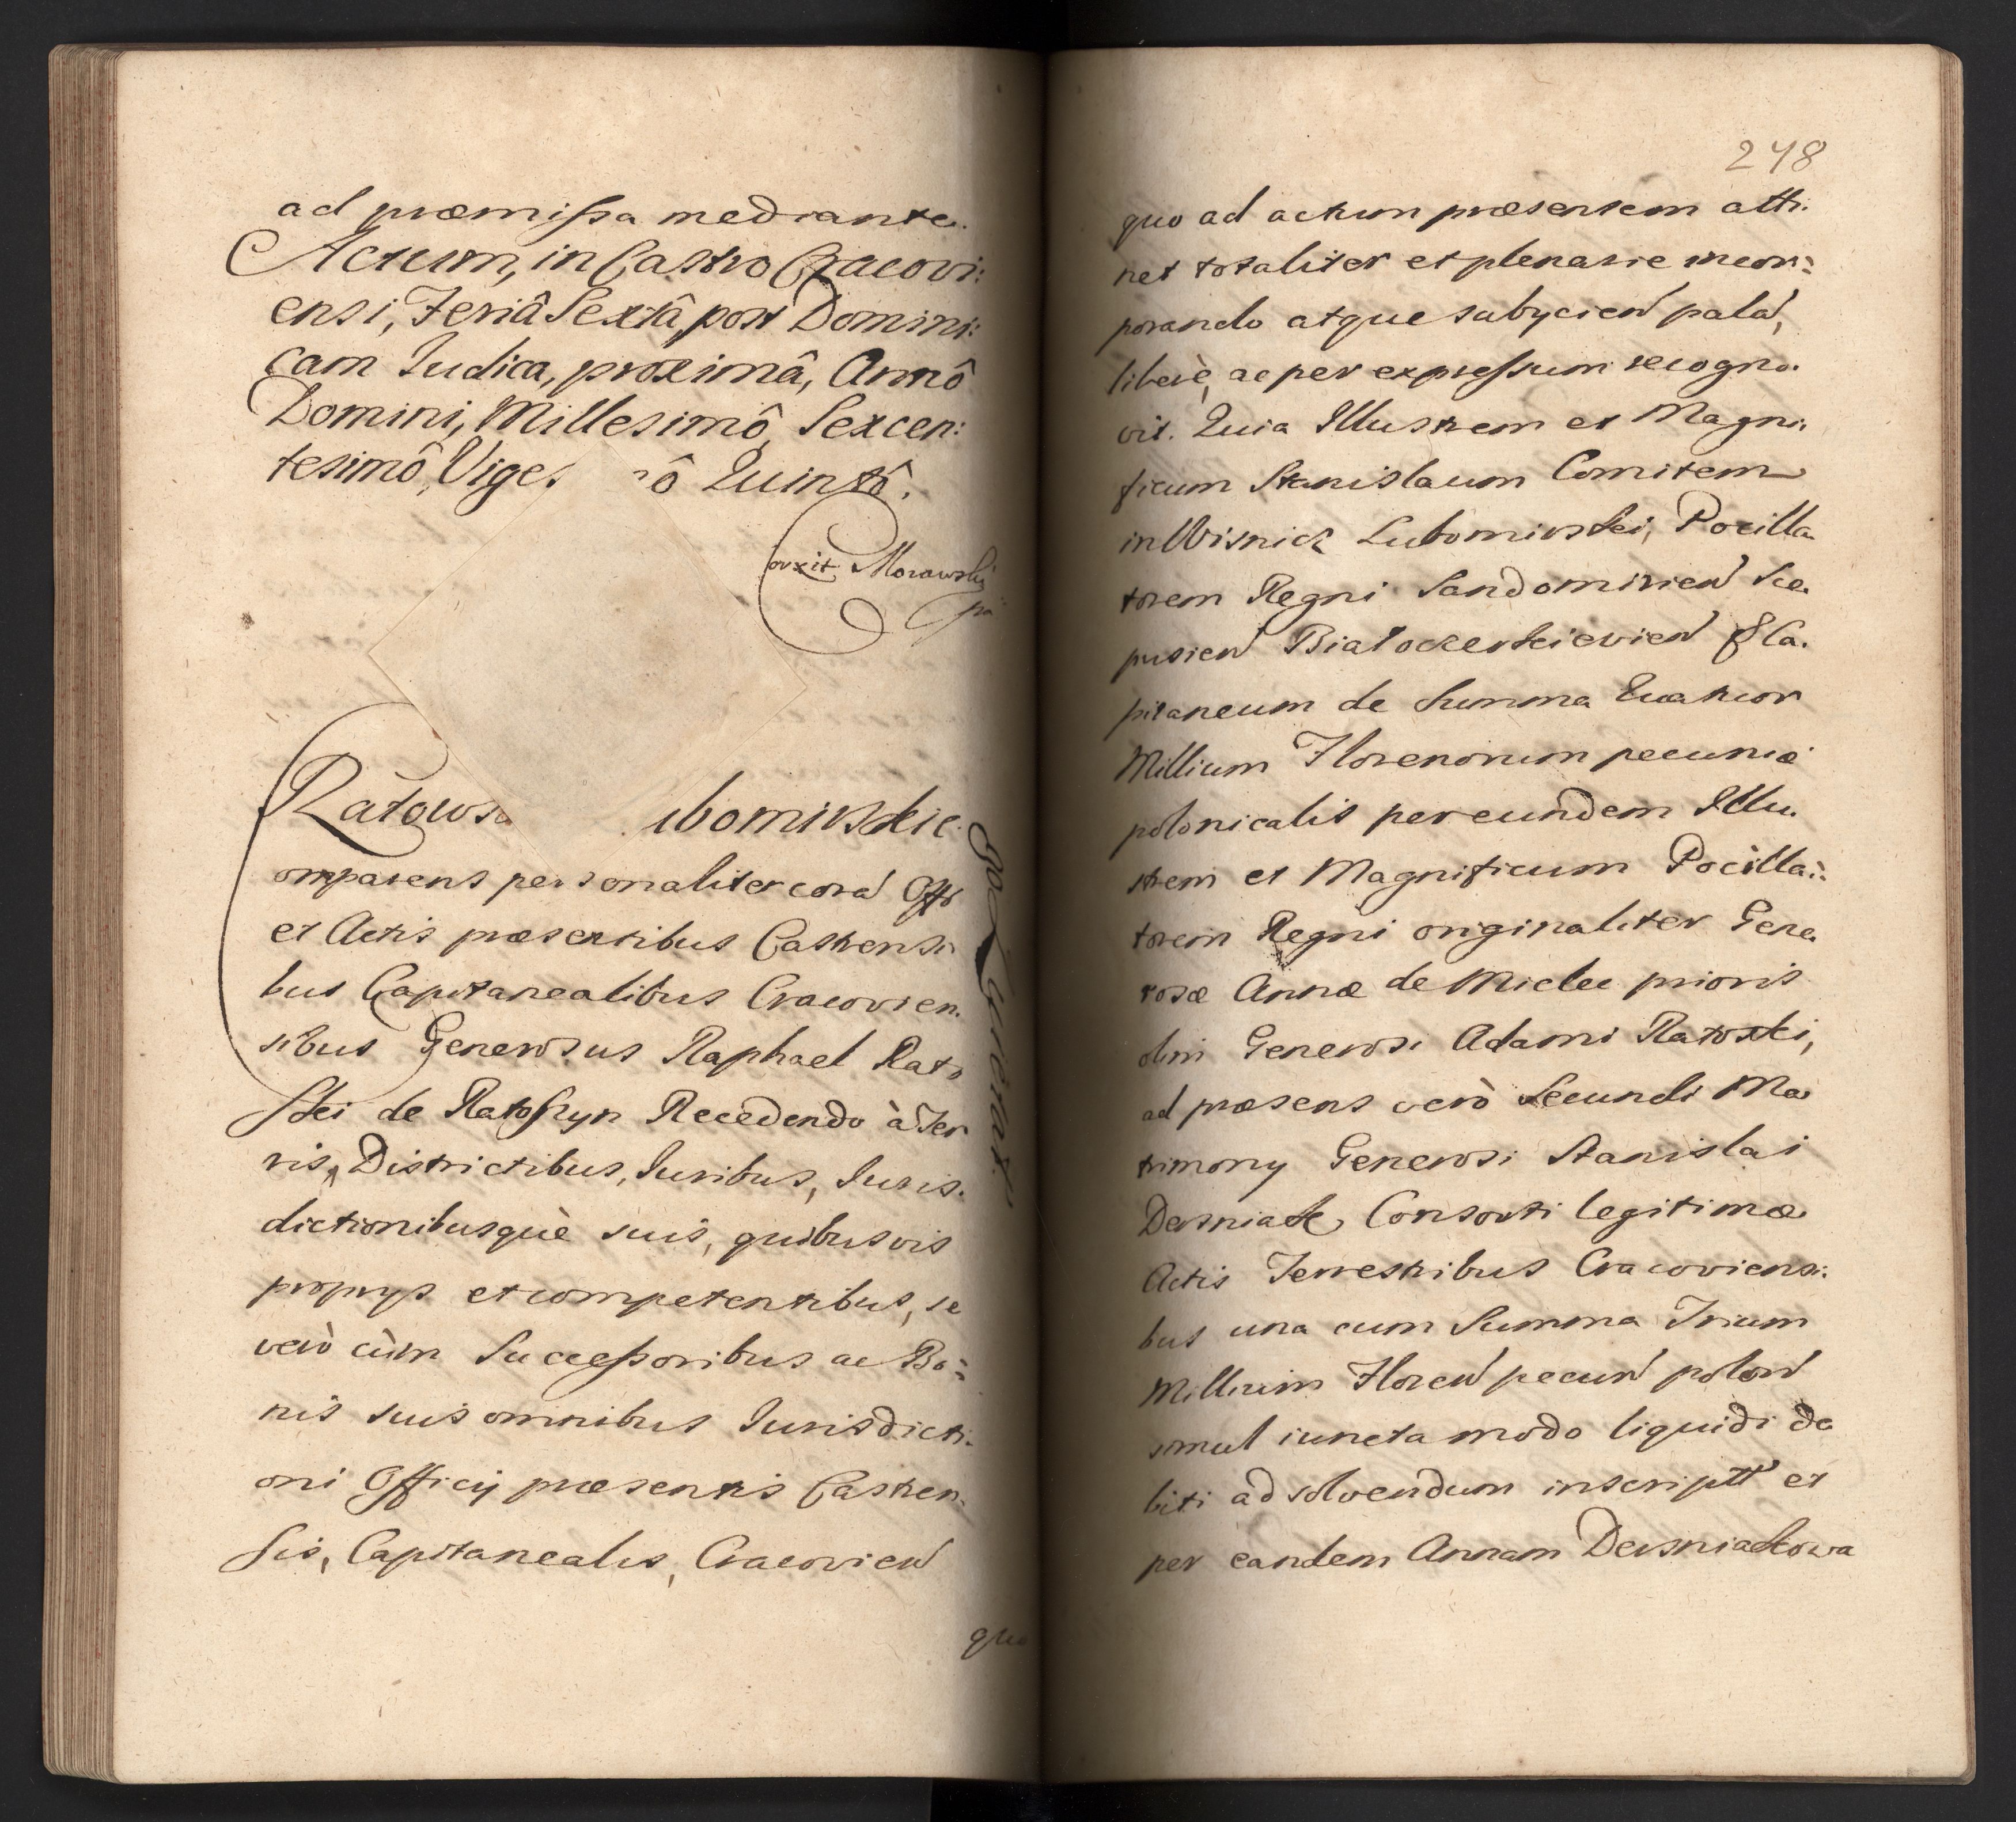 ad præmissa mediante.
Actum, in Castro Cracovi:
ensi, Feriâ Sextâ, post Domini:
cam Iudica, proximâ, Annô
Domini, Millesimô, Sexcen:
tesimô, Viges ô Quintô.
Corxit Morawski
Ratows ubomirskie.
omparens personaliter corā Offō
et Actis præsentibus Castrensi
bus Capitanealibus Cracovien.
sibus Generosus Raphael Rato
ski de Ratoszyn Recedendo à Ter
ris, Districtibus, Iuribus, Iuris.
dictionibusquè suis, quibusvis
proprys et competentibus, se
verò cùm Successoribus ac Bo:
nis suis omnibus Iurisdicti.
oni Officij præsentis Castren.
sis, Capitanealis, Cracovień
quo
248
quo ad actum præsentem atti:
net totaliter et plenarie incor:
porando atque subyciend palā,
liberè, ac per expressum recogno.
vit. Quia Illustrem et Magni.
ficum Stanislaum Comitem
in Wisnicz Lubomirski, Pocilla
torem Regni Sandomirień Sce.
pusień Białocerkieвień & Ca.
pitaneum de Summa Quatuor
Millium Florenorum pecuniæ
polonicalis per eundem Illu.
strem et Magnificum Pocilla:
torem Regni originaliter Gene.
rosæ Annæ de Mielec prioris
olim Generosi Adami Ratoski,
ad præsens verò Secundi Ma
trimony Generosi Stanislai
Dersniak, Consorti legitimæ
Actis Terrestribus Cracoviensi:
bus una cum Summa Trium
Millium Floreń pecuń poloń
simul iuncta modo liquidi de
biti ad solvendum inscriptt et
per eandem Annam Dersniakowa